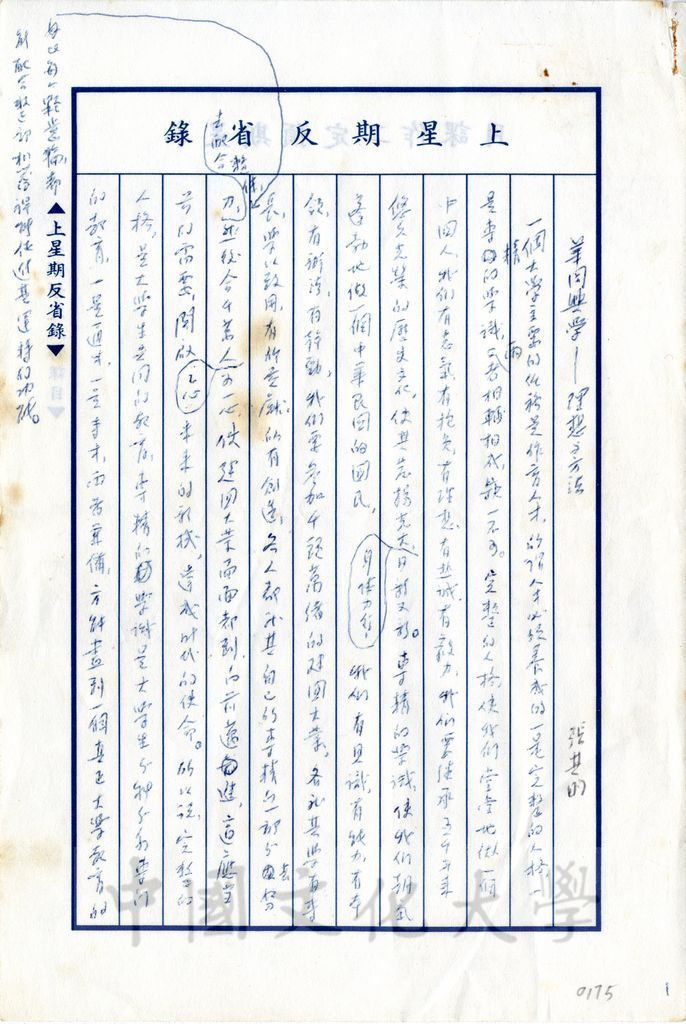 上星期反省錄
華岡興學——理想與方法
張其昀
一個大學主要的任務是作育人才，所謂人才必須養成的一是完整的人格，一
是專精的學識，兩者相輔相成，缺一不可。完整的人格，使我們堂堂地做一個
中國人，我們有志氣有抱負，有理想有熱誠有毅力，我們要繼承五千年來
悠久光榮的歷史文化，使其發揚光大，日新又新。專精的學識，使我們朝氣
蓬勃地做一個中華民國的國民，身體力行，我們有見識有能力，有本
領，有辦法，有行動，我們要參加千頭萬緒的建國大業。各就其學有專
長，學以致用，有所貢獻，有所創造，各人都就其自己的專精的一部分去努
力，去配合整體，然後合千萬人為一心，使建國大業面面都到，向前邁進，這應當
前的需要，開啟 未來的新機，達成時代的使命。所以說，完整的
人格，是大學生共同的教育，專精的學識是大學生分科分系專門
的教育，一是通才，一是專才，兩者兼備，方能盡到一個真正大學教育的
▲上星期反省錄▼
每一顆螺絲，都
能配合整部機器
中國文化大學
0175